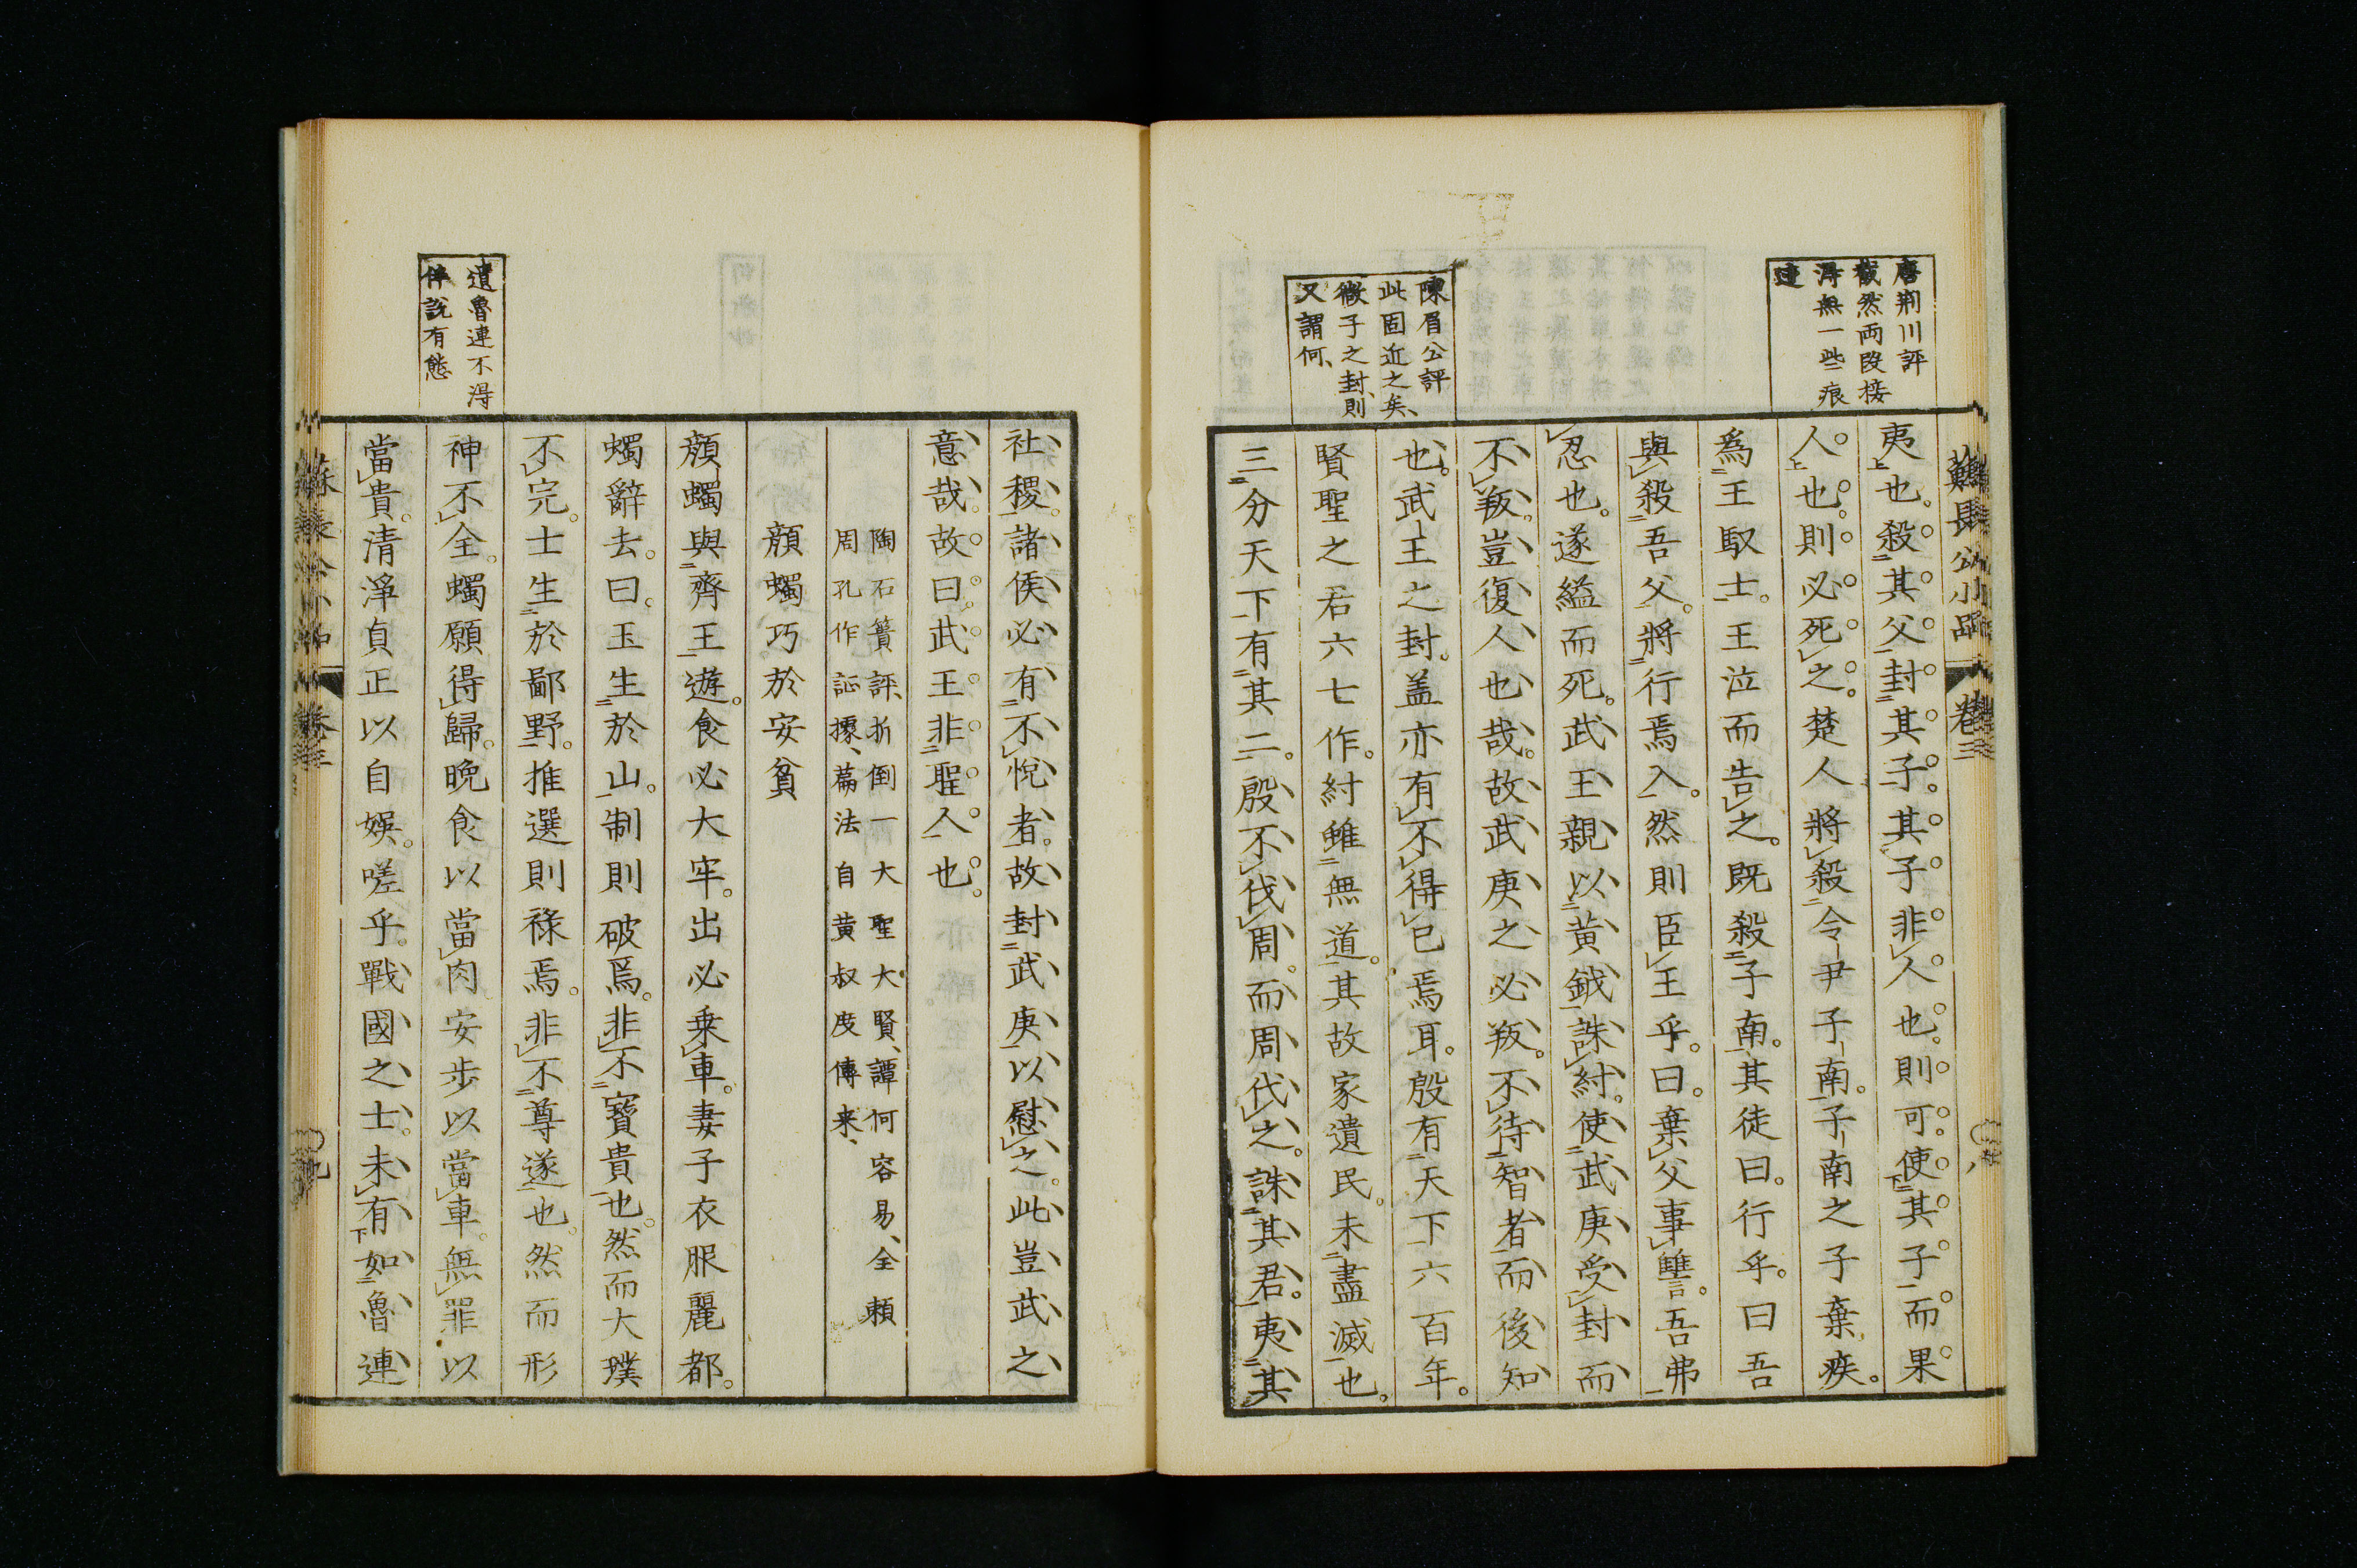 蘇長公小品　卷三　八
唐荆川評
截然両段接
得無一些痕
迹
陳眉公評
此固近之矣、
微子之封、則
又謂何、
夷也。殺其父封其子。其子非人也。則可使其子而果
人也。則必死之。楚人將殺令尹子南。子南之子棄疾。
爲王馭士。王泣而告之。既殺子南。其徒曰。行乎。曰吾
與殺吾父。將行焉入。然則臣王乎。曰。棄父事讐。吾弗
忍也。遂縊而死。武王親以黄鉞誅紂。使武庚受封而
不叛。豈復人也哉。故武庚之必叛。不待智者而後知
也。武王之封。盖亦有不得已焉耳。殷有天下六百年。
賢聖之君六七作。紂雖無道。其故家遺民。未盡滅也。
三分天下有其二。殷不伐周。而周代之。誅其君。夷其
遺魯連不得
伴説有態
社稷。諸侯必有不悅者。故封武庚以慰之。此豈武之
意哉。故曰。武王非聖人也。
陶石簣評、折倒一大聖大賢、譚何容易、全頼
周孔作証據、篇法自黄叔度傳来、
顏蠋巧於安貧
顏蠋與齊王遊。食必大牢。出必乗車。妻子衣服麗都。
蠋辭去。曰。玉生於山。制則破焉。非不寶貴也。然而大璞
不完。士生於鄙野。推選則祿焉。非不尊遂也。然而形
神不全。蠋願得歸。晩食以當肉。安步以當車。無罪以
當貴。清淨貞正以自娯。嗟乎。戰國之士。未有如魯連
蘇長公小品　卷三　九